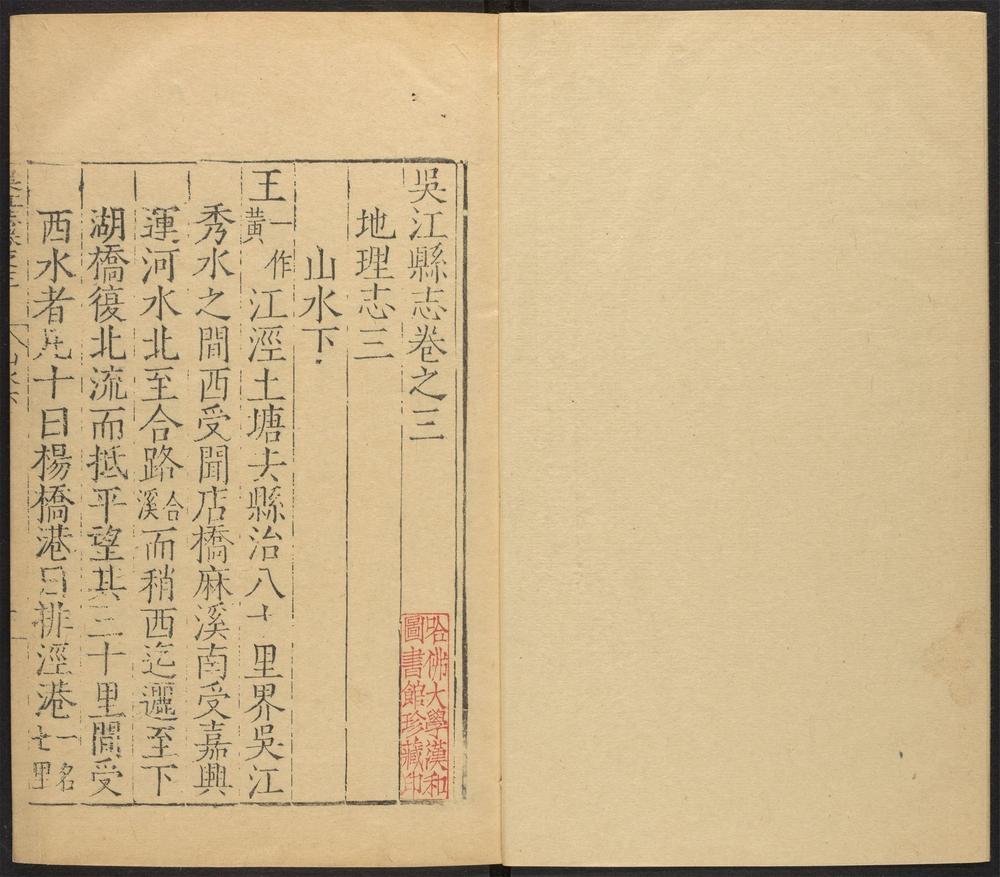 吳江縣志卷之三
地理志三
山水下
王一作黃江涇土塘去縣治八十里界吳江
秀水之間西受聞店橋麻溪南受嘉興
運河水北至合路合溪而稍西迄邐至下
湖橋復北流而抵平望其三十里間受
西水者凡十曰楊橋港曰排涇港一名七里
哈佛大學漢和
圖書館珍藏印